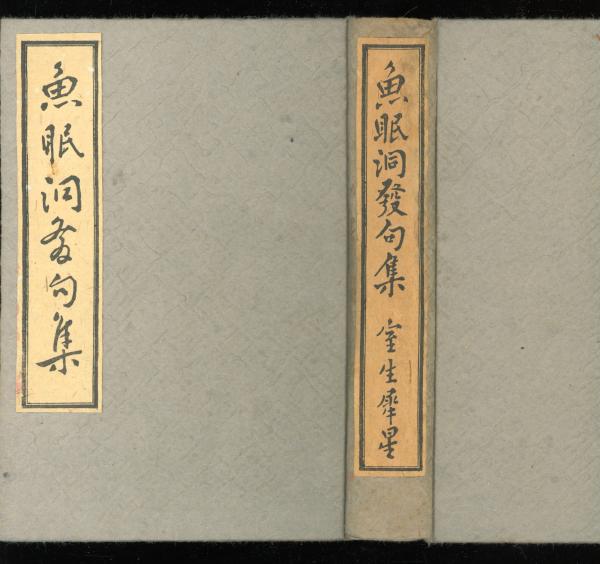 魚眠洞發句集
魚眠洞發句集 室生犀星